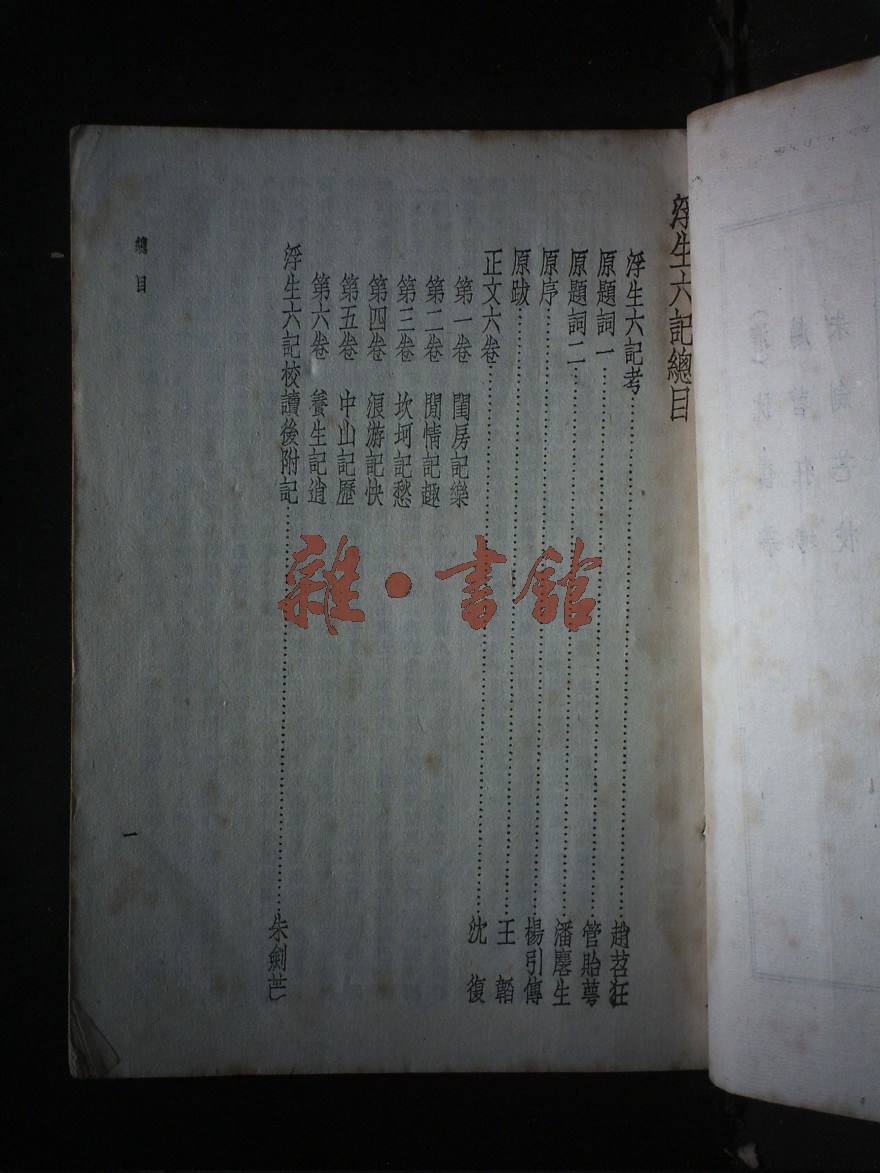 浮生六記總目
浮生六記考……趙苕狂
原題詞一……管貽萼
原題詞二……潘麐生
原序……楊引傳
原跋……王韜
正文六卷……沈復
第一卷 閨房記樂
第二卷 閒情記趣
第三卷 坎坷記愁
第四卷 浪游記快
第五卷 中山記歷
第六卷 養生記逍
浮生六記校讀後附記……朱劍芒
總目
一
雜·書館